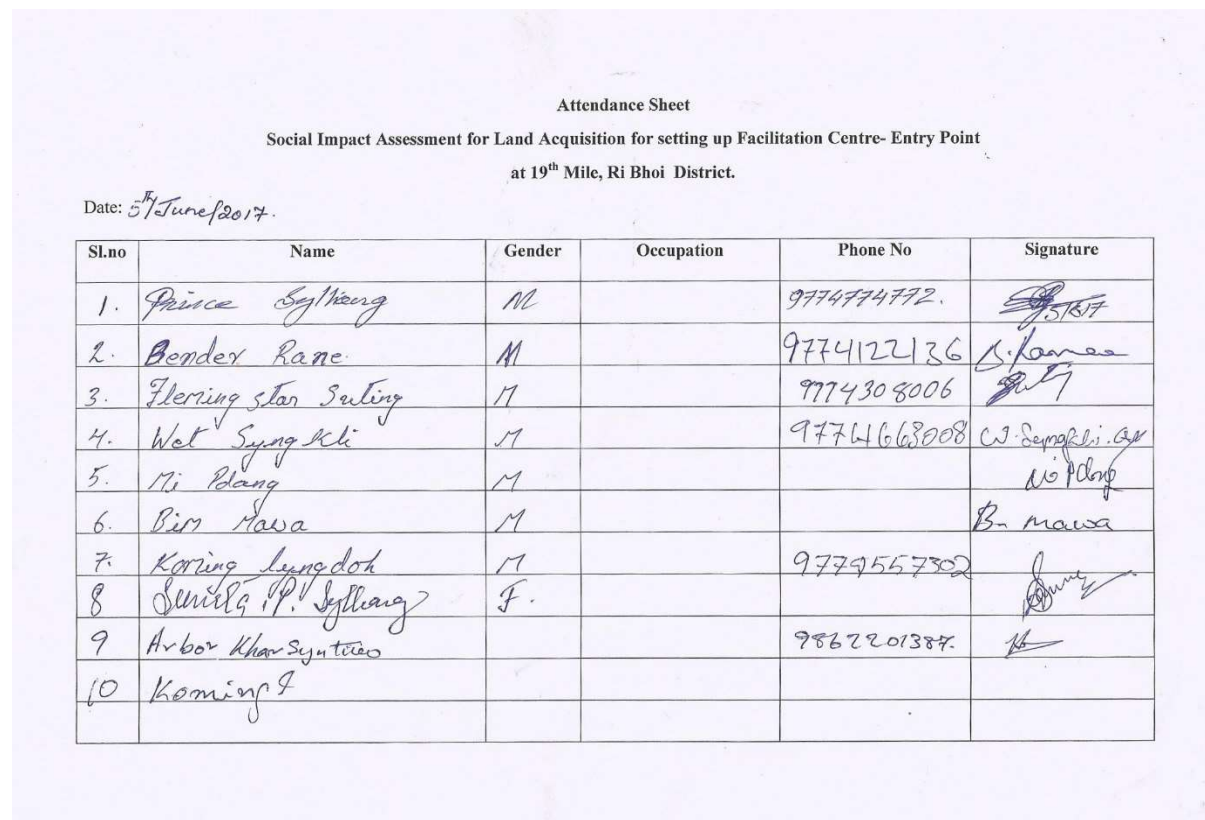 Attendance Sheet
Social Impact Assessment for Land Acquisition for setting up Facilitation Centre- Entry Point
at 19th Mile, Ri Bhoi District.
Date: 5th/June/2017.
Sl.no Name Gender Occupation Phone No Signature
1. Prince Sylliang M 9774774772.
2. Bender Rane M 9774122136
3. Fleming star Suting M 9774308006
4. Wet Syngkli M 9774663008
5. Mi Pdang M
6. Bin Mawa M B- mawa
7. Koming lyngdoh M 9779557302
8 Sunita P. Sylliang F.
9 Arbor Kharsyntiew 9862201387.
10 Koming